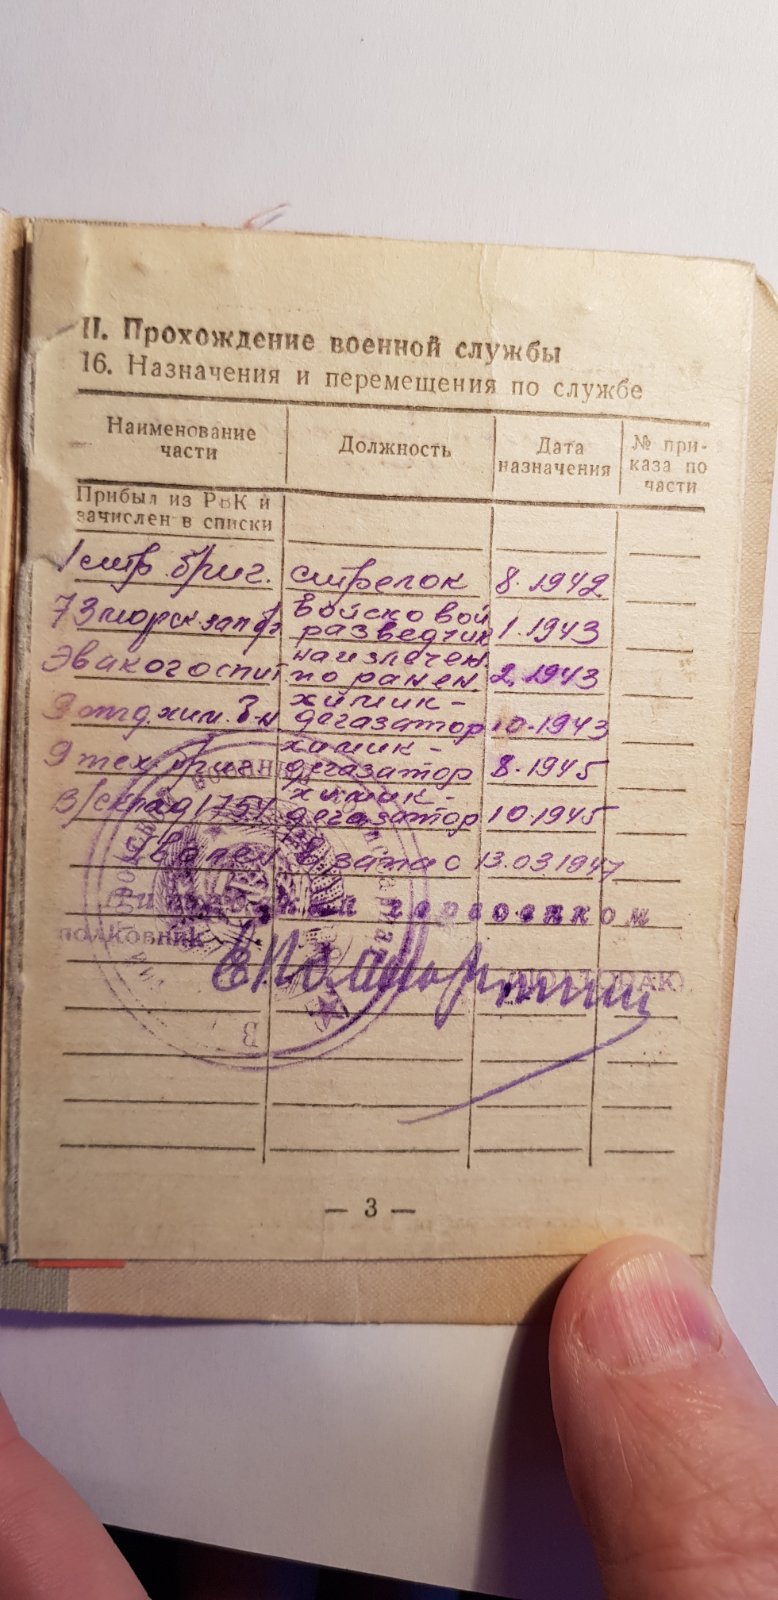 II. Прохождение военной службы
16. Назначения и перемещения по службе
Наименование части
Должность
Дата назначения
№ при-каза по части
Прибыл из РВК и
зачислен в списки
1 стр. бриг. стрелок 8.1942
73 морск. зап. войсковой разведчик 1.1943
Эвакогоспит на излечен. по ранен. 2.1943
9 отд. хим. б-н химик-дегазатор 10.1943
9 тех. бриг. химик-дегазатор 8.1945
В/склад 1751 химик-дегазатор 10.1945
Уволен в запас 13.03.1947
горвоенком
полковник
— 3 —